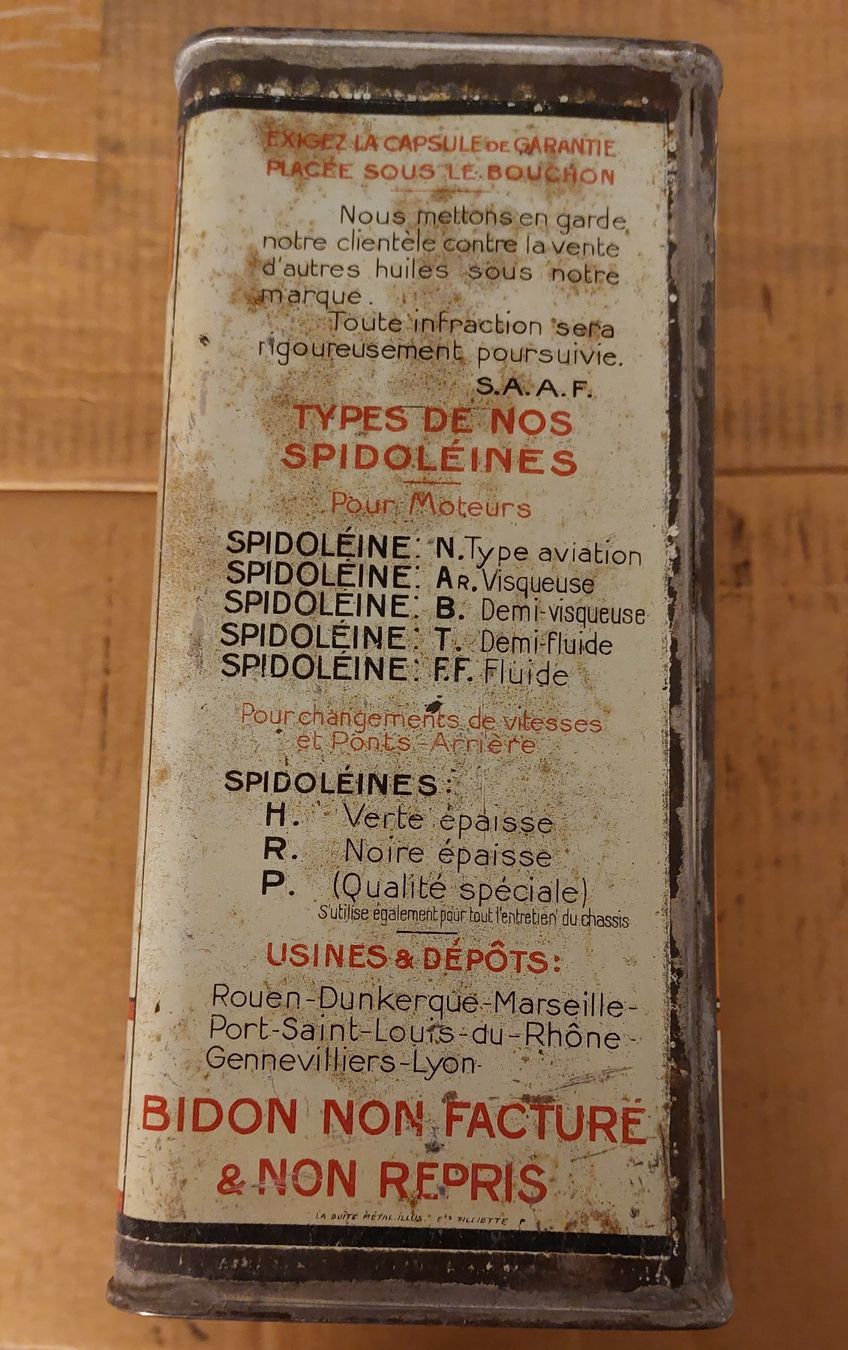 EXIGEZ LA CAPSULE DE GARANTIE
PLACÉE SOUS LE BOUCHON
Nous mettons en garde
notre clientèle contre la vente
d'autres huiles sous notre
marque.
Toute infraction sera
rigoureusement poursuivie.
S.A.A.F.
TYPES DE NOS
SPIDOLÉINES
Pour Moteurs
SPIDOLÉINE: N. Type aviation
SPIDOLÉINE: AR. Visqueuse
SPIDOLÉINE: B. Demi-visqueuse
SPIDOLÉINE: T. Demi-fluide
SPIDOLÉINE: F.F. Fluide
Pour changements de vitesses
et Ponts-Arrière
SPIDOLÉINES:
H. Verte épaisse
R. Noire épaisse
P. (Qualité spéciale)
S'utilise également pour tout l'entretien du chassis
USINES & DÉPÔTS:
Rouen-Dunkerque-Marseille-
Port-Saint-Louis-du-Rhône-
Gennevilliers-Lyon
BIDON NON FACTURÉ
& NON REPRIS
LA BOITE MÉTAL. ILLUS.